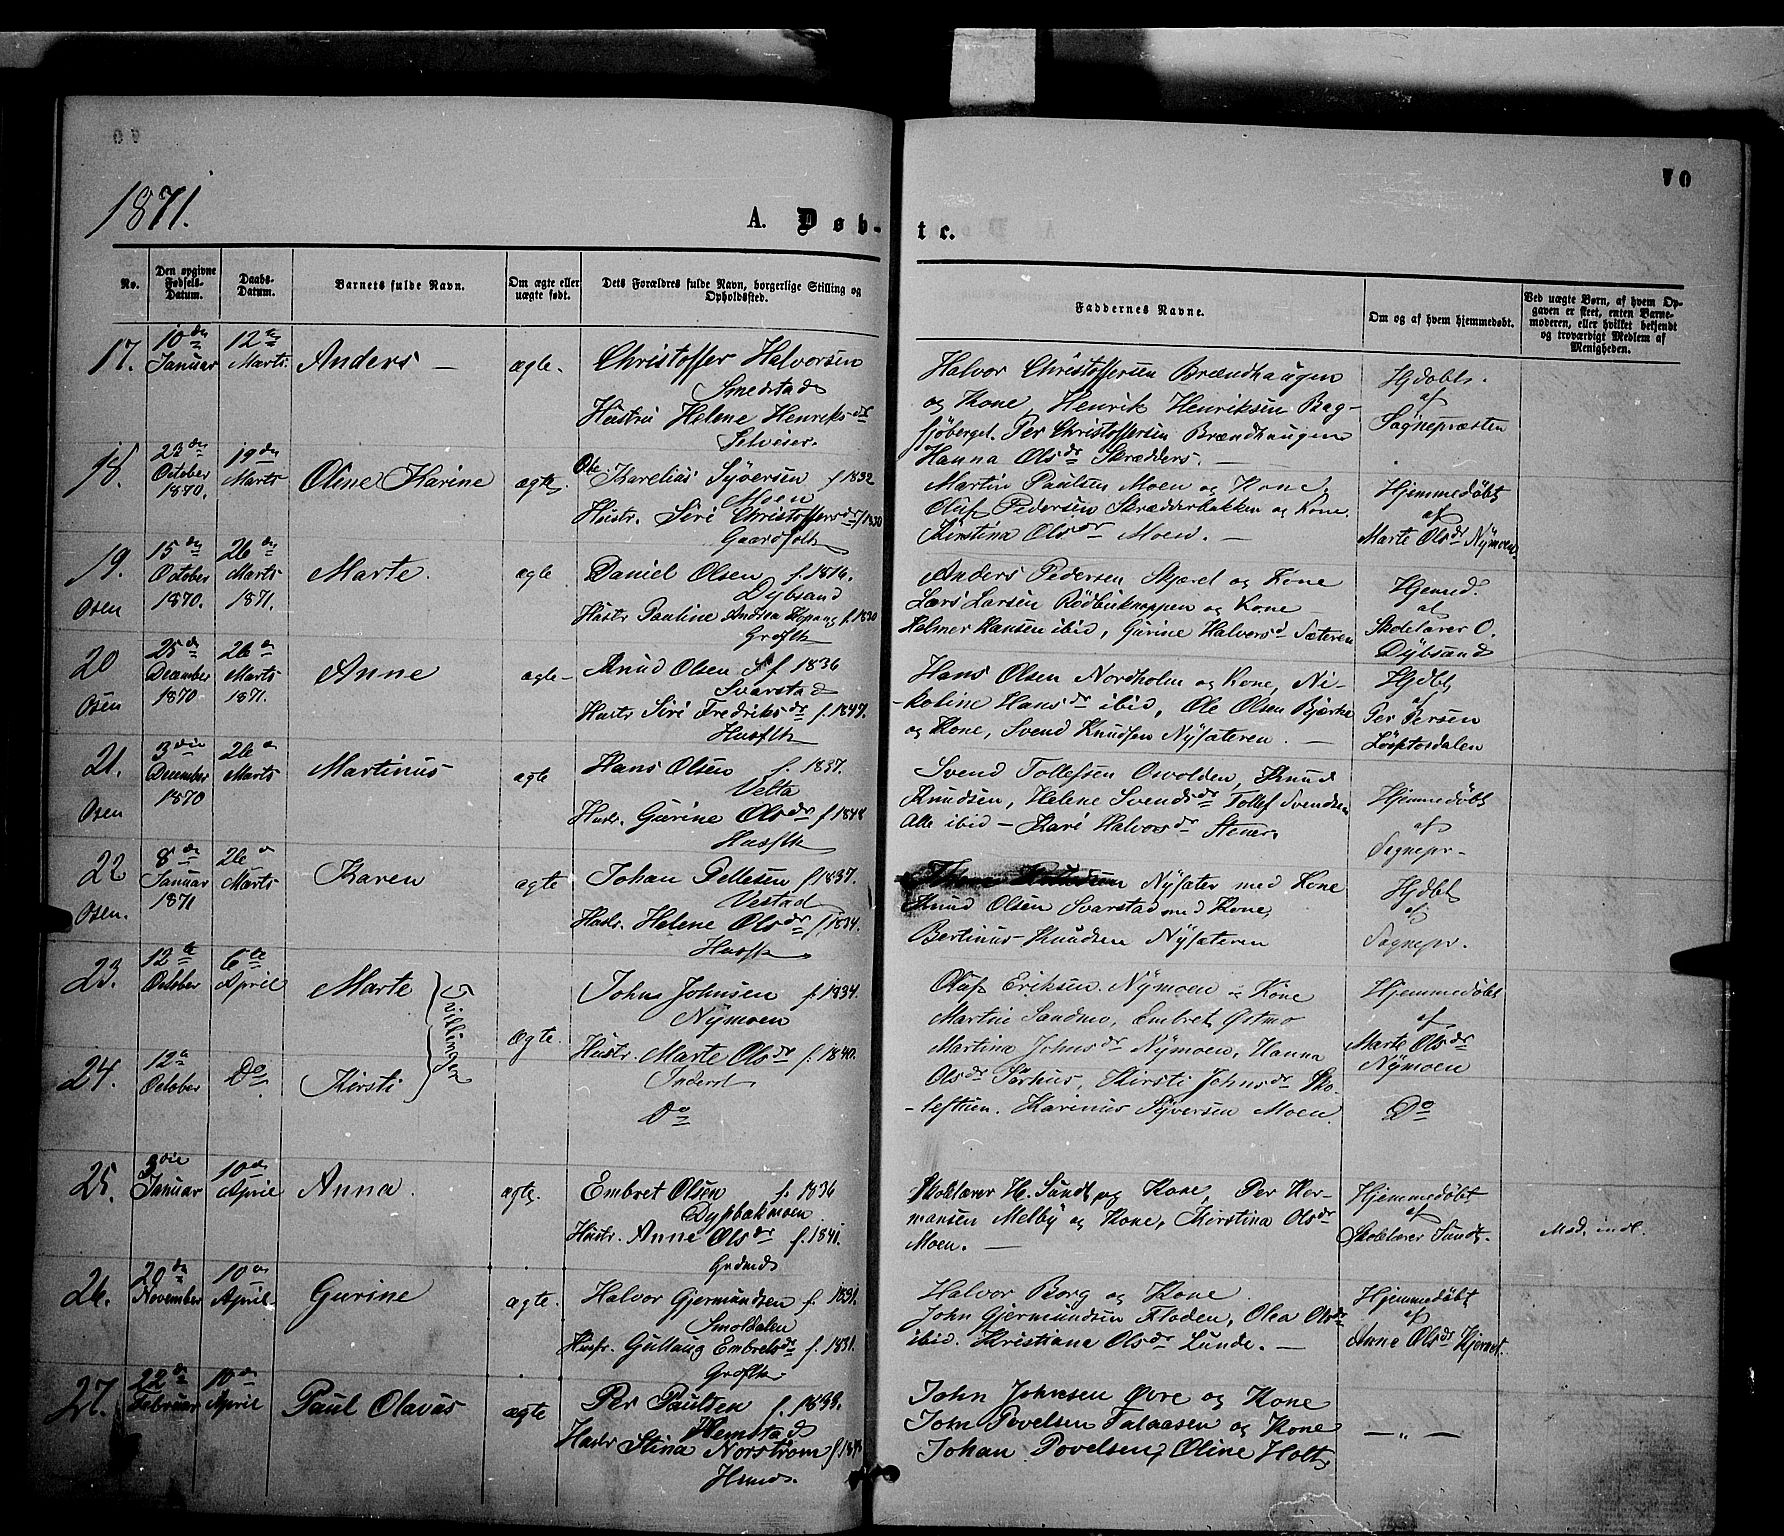 1871.
70
A. Døb-
te.
No.
Den opgivne Fødsels-Datum.
Daabs-Datum.
Barnets fulde Navn.
Om ægte eller uægte født.
Dets Forældres fulde Navn, borgerlige Stilling og Opholdssted.
Faddernes Navne.
Om og af hvem hjemmedøbt.
Ved uægte Børn, af hvem Opgaven er skeet, enten Barnemoderen, eller hvilket bekjendt og troværdigt Medlem af Menigheden.
17.
10de Januar
12te Marts.
Anders —
ægte.
Christoffer Halvorsen
Smedstad
Hustru Helene Henriksdr
Halvor Christoffersen Brændhaugen
og Kone, Henrik Henriksen Bag-
sjøberget. Per Christoffersen Brændhaugen
Hanna Olsdr Skrædders. —
Hjdøbt.
af
Sognepræsten
18.
23de October 1870.
19de Marts
Oline Karine
ægte.
Karelius Syversen f 1832
Moen
Hustr. Siri Christoffersdr f 1830
Gaardfolk
Martin Paulsen Moen og Kone,
Oluf Pedersen Skrædderbakken og Kone.
Kirstina Olsdr Moen. —
Hjemmedøbt
af
Marte Olsdr Nymoen.
19.
Osen
15de October 1870.
26de Marts 1871.
Marte.
ægte
Daniel Olsen f. 1816.
Dybsand
Hustr Pauline Andrea f. 1830
Grdflk
Anders Pedersen Skjæret og Kone
Lars Larsen Rødbækmoppen og Kone
Helmer Hansen ibid, Gurine Halvorsd Sæteren
Hjemd.
af
Skolelærer O.
Dybsand
20
Osen
25de December 1870.
26de Marts 1871.
Anne
ægte
Knud Olsen f. 1836
Svarstad
Hustr Siri Fredriksdr f. 1847.
Husflk
Hans Olsen Nordholm og Kone, Ni-
-koline Hansdr ibid, Ole Olsen Bjørke
og Kone, Svend Knudsen Nysæteren. —
Hjdbt
af
Per Persen
21.
Osen
3die December 1870
26de Marts
Martinus
ægte
Hans Olsen f. 1837.
Velta
Hustr. Gurine Olsdr f 1848
Husflk
Svend Tollefsen Osvolden, Knud
Knudsen, Helene Svendsdr Tollef Svendsen
Alle ibid — Kari Halvorsdr Stener.
Hjemmedøbt
af
Sognepr.
22
Osen.
8de Januar 1871
26de Marts
Karen
ægte
Johan Pellesen f 1837.
Vestad
Hustr. Helene Olsdr f. 1834.
Husflk
Knudsen Nysæter med Kone
Knud Olsen Svarstad med Kone,
Bertinus Knudsen Nysæteren
Hjdbt
af
Sognepr.
23.
12te October
6te April
Marte
Tvillinger
ægte.
John Johnsen f. 1834.
Nymoen
Hustr. Marte Olsdr f. 1840.
Inderst
Oluf Eriksen Nymoen & Kone
Martin Sandmo, Embret Østmo
Martina Johnsdr Nymoen, Hanna
Olsdr Sørhus, Kirsti Johnsdr Sko-
-leftuen. Karinus Syversen Moen.
Hjemmedøbt
af
Marte Olsdr
Nymoen
24.
12te October
Do
Kirsti
Do
Do
25.
3die Januar
10de April
Anna.
ægte.
Embret Olsen f. 1836
Dypbakmoen
Hustr. Anne Olsdr f. 1841.
Skolelærer H. Sundt og Kone, Per Her-
mansen Melby og Kone, Kirstina Olsdr
Moen. —
Hjemmedøbt
af
Skolelærer Sundt.
26.
20de November
10de April
Gurine
ægte.
Halvor Gjermundsen f. 1831.
Smoldalen
Husfr. Gullaug Embretsdr f. 1831.
Grdflk
Halvor Borg og Kone
John Gjermundsen Floden, Olea Olsdr
ibid. Kristiana Olsdr Lunde. —
Hjemmedøbt
af
Anne Olsdr
27.
22de Februar
10de April
Paul Olavus
ægte
Per Paulsen f. 1838.
Hemstad
Hustr Stina Norstrøm
John Johnsen Øvre og Kone
John Povelsen Falaasen og Kone
Johan Povelsen, Oline Holt,
— „ —